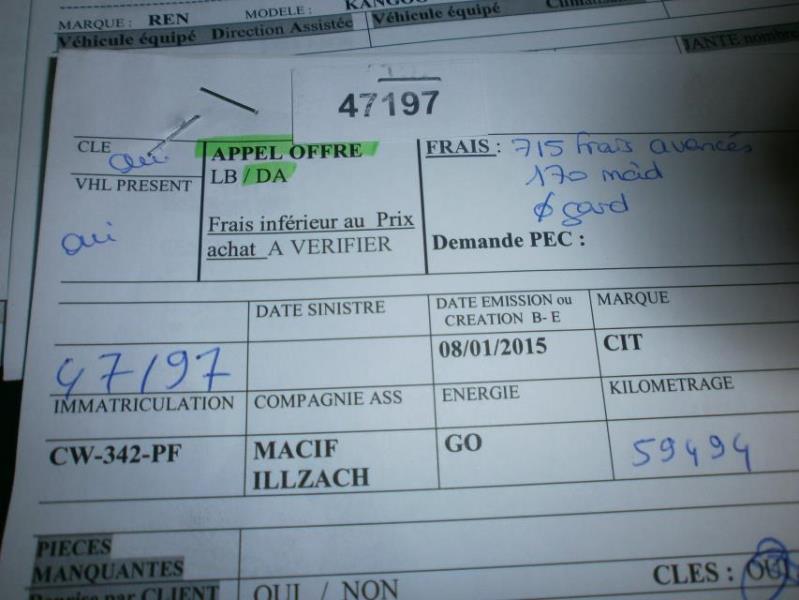 MARQUE : REN MODELE : KANGOO
Véhicule équipé Direction Assistée Véhicule équipé
JANTE nombre
47197
CLE oui
VHL PRESENT
oui
APPEL OFFRE
LB / DA
Frais inférieur au Prix
achat A VERIFIER
FRAIS : 715 frais avancés
170 màd
∅ gard
Demande PEC :
DATE SINISTRE
DATE EMISSION ou
CREATION B- E
MARQUE
47197
08/01/2015
CIT
IMMATRICULATION
COMPAGNIE ASS
ENERGIE
KILOMETRAGE
CW-342-PF
MACIF
ILLZACH
GO
59494
PIECES
MANQUANTES
CLES : OUI
Reprise par CLIENT
OUI / NON